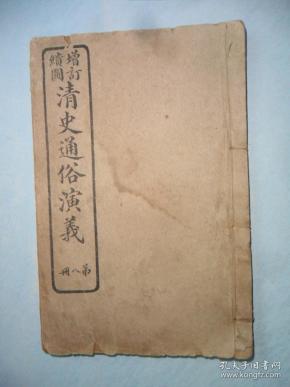 增訂
繪圖
清史通俗演義
第八冊
孔夫子旧书网